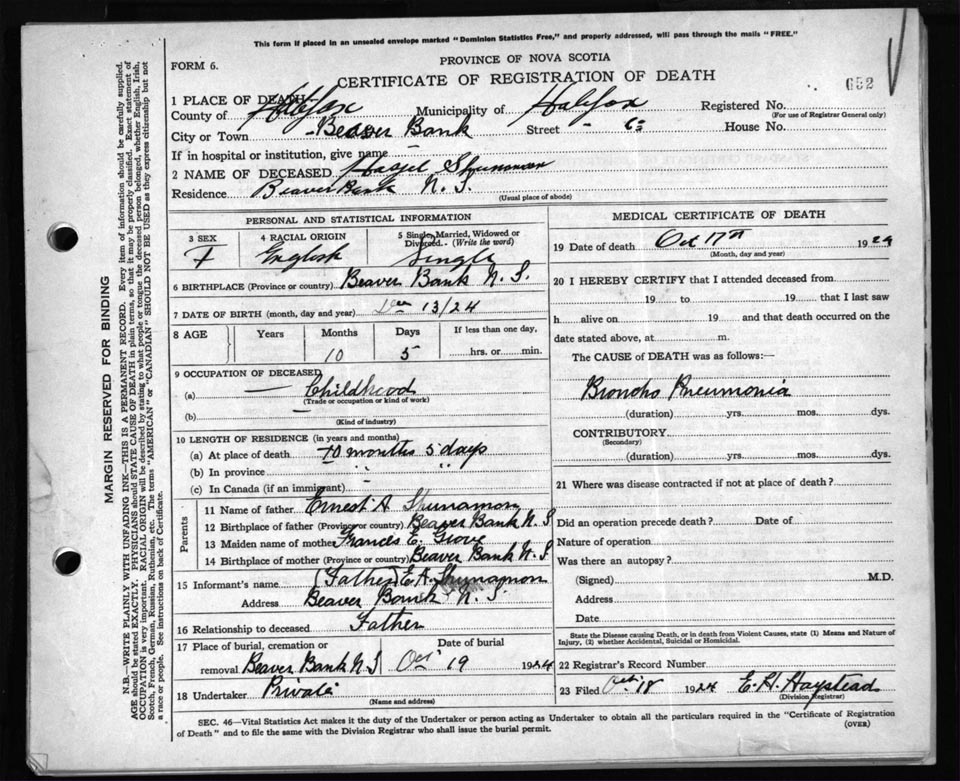 This form if placed in an unsealed envelope marked "Dominion Statistics Free," and properly addressed, will pass through the mails "FREE."
FORM 6.
PROVINCE OF NOVA SCOTIA
CERTIFICATE OF REGISTRATION OF DEATH
652
1 PLACE OF DEATH—
County of Halifax Municipality of Halifax Registered No.
(For use of Registrar General only)
City or Town Beaver Bank Street - House No.
If in hospital or institution, give name
2 NAME OF DECEASED Hazel
Residence Beaver Bank N. S.
(Usual place of abode)
PERSONAL AND STATISTICAL INFORMATION
3 SEX 4 RACIAL ORIGIN 5 Single, Married, Widowed or Divorced. (Write the word)
F English Single
6 BIRTHPLACE (Province or country) Beaver Bank N. S.
7 DATE OF BIRTH (month, day and year) Dec 13/24
8 AGE Years Months Days If less than one day,
10 5 hrs. or min.
9 OCCUPATION OF DECEASED
(a) Childhood
(Trade or occupation or kind of work)
(b) —
(Kind of industry)
10 LENGTH OF RESIDENCE (in years and months)
(a) At place of death 10 months 5 days
(b) In province " "
(c) In Canada (if an immigrant) -
Parents
11 Name of father Ernest A
12 Birthplace of father (Province or country) Beaver Bank N. S
13 Maiden name of mother Francis E.
14 Birthplace of mother (Province or country) Beaver Bank N. S.
15 Informant's name (Father) E. A.
Address Beaver Bank N. S.
16 Relationship to deceased Father
17 Place of burial, cremation or Date of burial
removal Beaver Bank N. S Oct 19 1924
18 Undertaker Private
(Name and address)
MEDICAL CERTIFICATE OF DEATH
19 Date of death Oct 17th 1924
(Month, day and year)
20 I HEREBY CERTIFY that I attended deceased from
19 to 19 that I last saw
h alive on 19 and that death occurred on the
date stated above, at m.
The CAUSE of DEATH was as follows:—
Broncho Pneumonia
(duration) yrs. mos. dys.
CONTRIBUTORY
(Secondary)
(duration) yrs. mos. dys.
21 Where was disease contracted if not at place of death?
Did an operation precede death? Date of
Nature of operation
Was there an autopsy?
(Signed) M.D.
Address
Date
State the Disease causing Death, or in death from Violent Causes, state (1) Means and Nature of
Injury, (2) whether Accidental, Suicidal or Homicidal.
22 Registrar's Record Number
23 Filed Oct. 18 1924 E. H. Haystead
(Division Registrar)
SEC. 46—Vital Statistics Act makes it the duty of the Undertaker or person acting as Undertaker to obtain all the particulars required in the "Certificate of Registration
of Death" and to file the same with the Division Registrar who shall issue the burial permit.
(OVER)
MARGIN RESERVED FOR BINDING
N.B.—WRITE PLAINLY WITH UNFADING INK—THIS IS A PERMANENT RECORD. Every item of information should be carefully supplied.
AGE should be stated EXACTLY. PHYSICIANS should STATE CAUSE OF DEATH in plain terms, so that it may be properly classified. Exact statement of
OCCUPATION is very important. RACIAL ORIGIN will be described by stating to what people or tongue the deceased person belonged, whether English, Irish,
Scotch, French, German, Russian, Ruthenian, etc. The terms "AMERICAN" or "CANADIAN" SHOULD NOT BE USED as they express citizenship but not
a race or people. See instructions on back of Certificate.